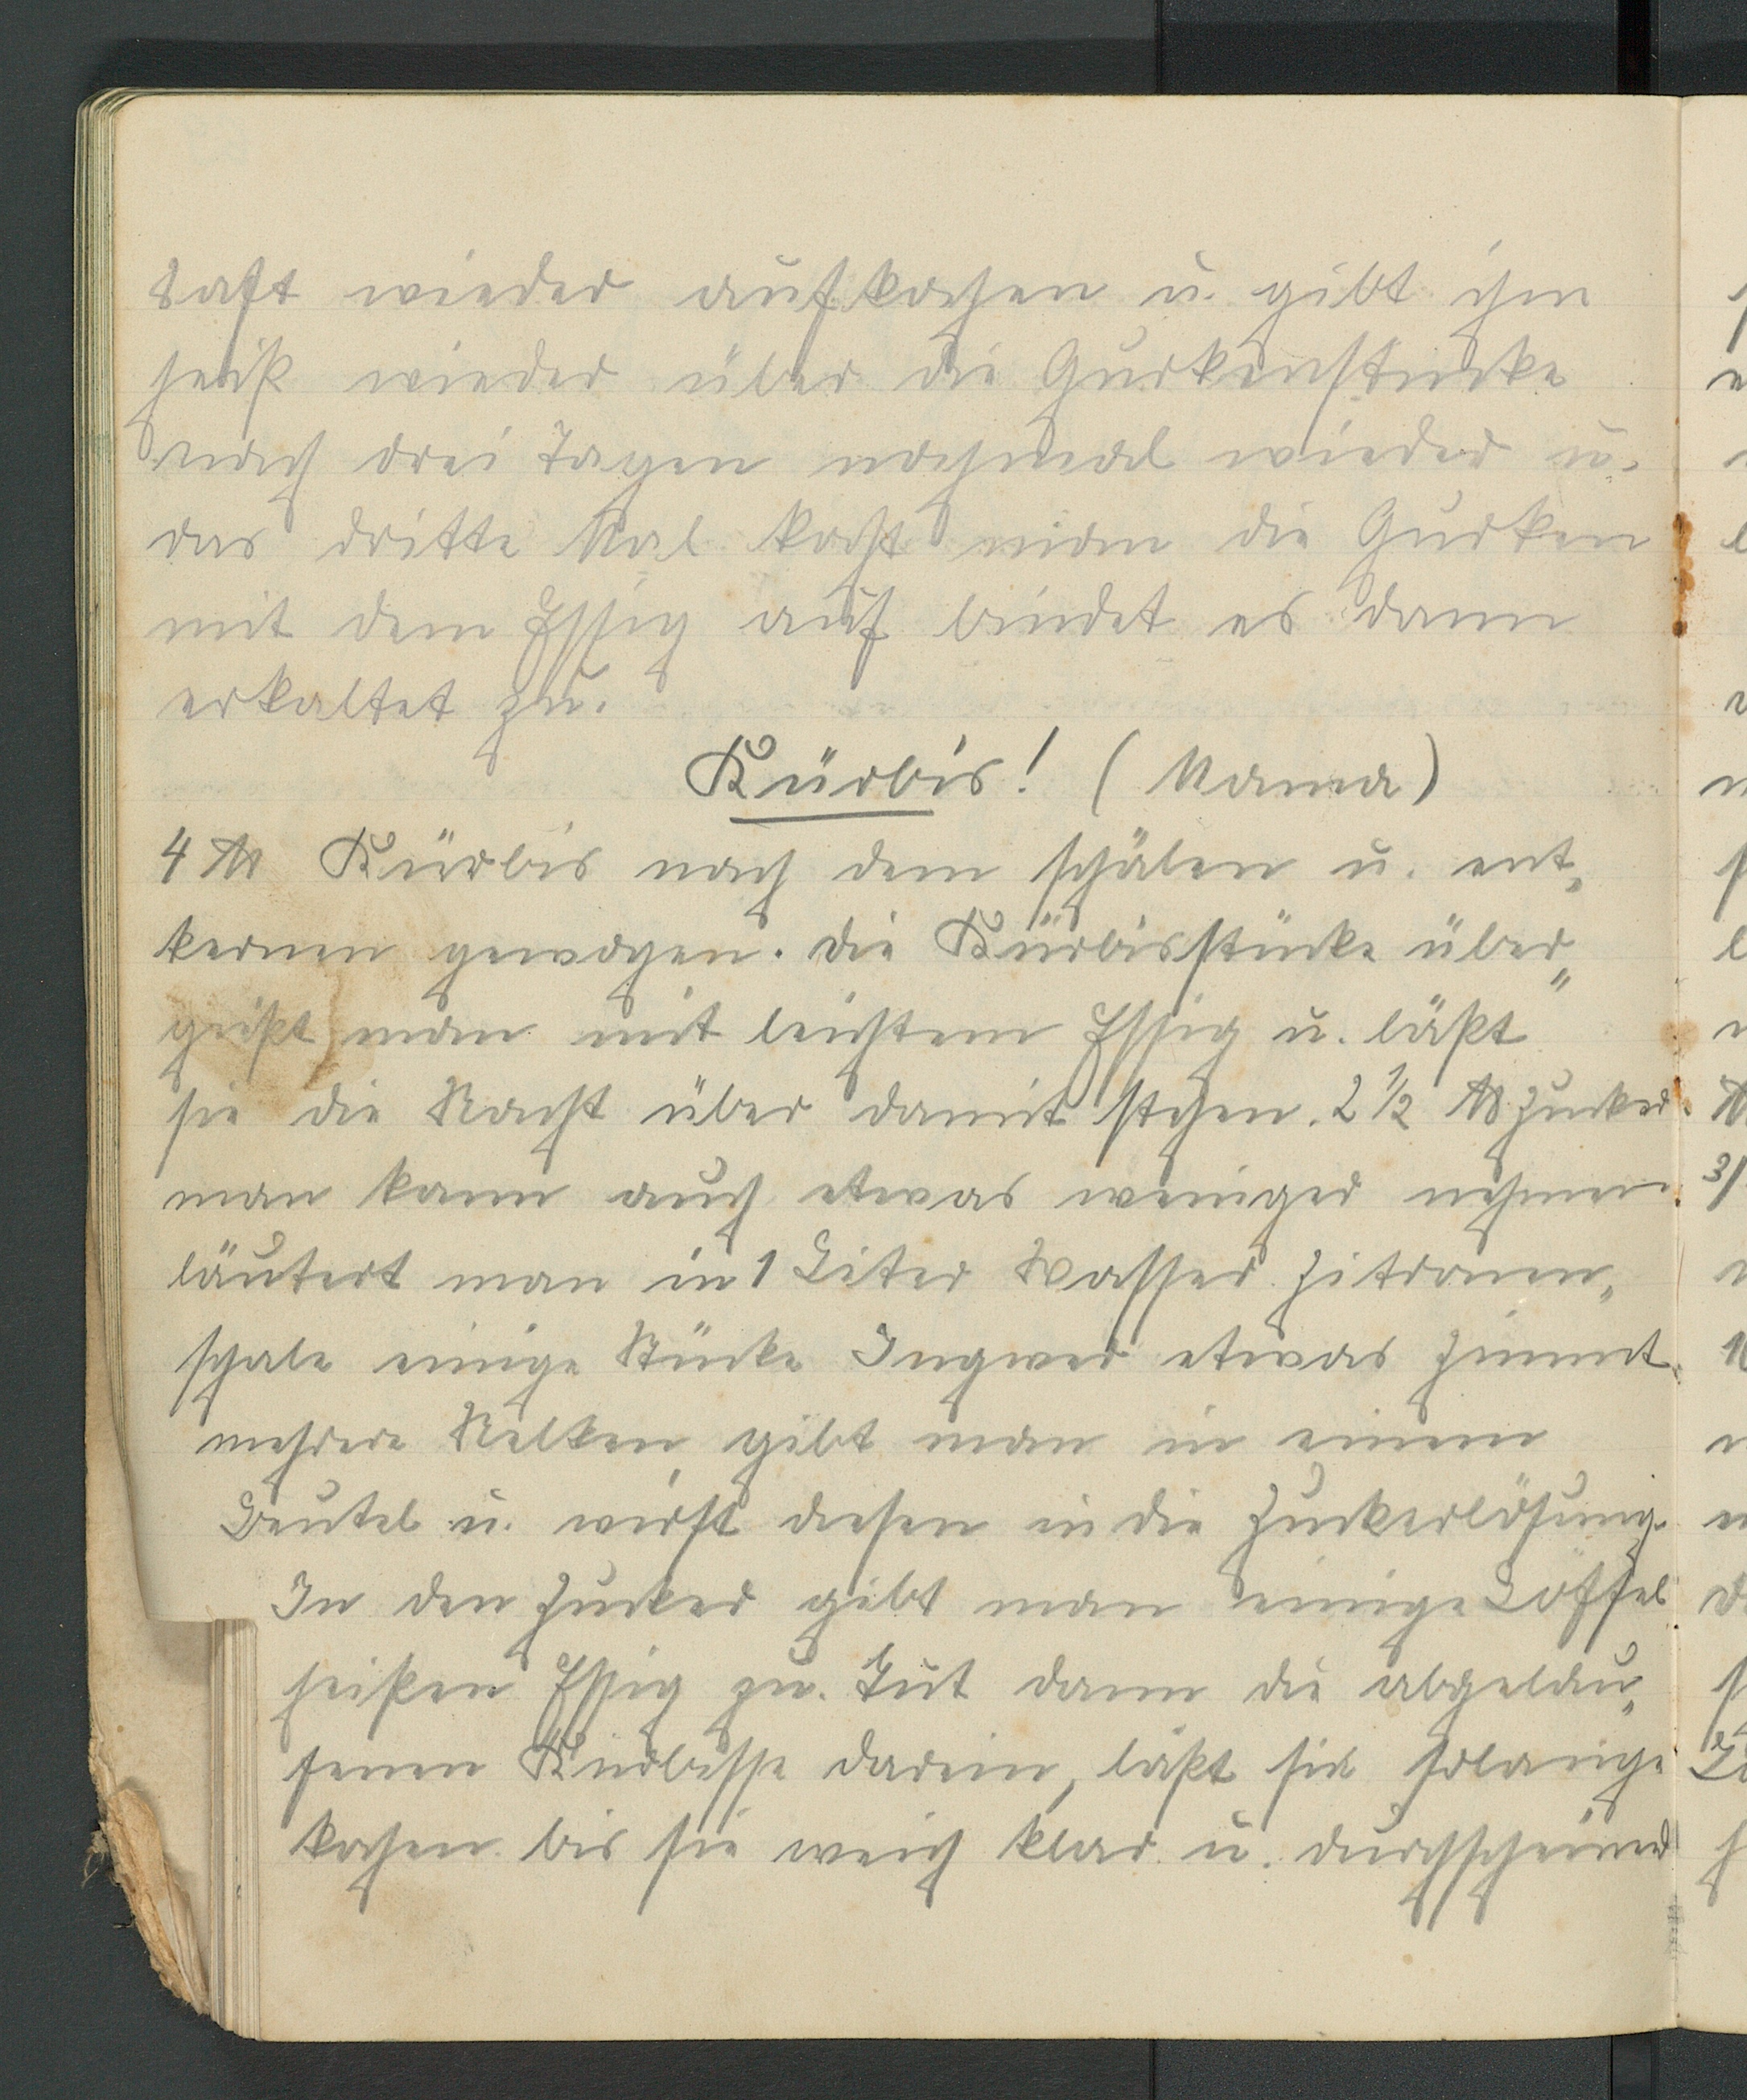 Saft wieder aufkochen u. gibt ihn
heiß wieder über die Gurkenstücke
nach drei Tagen nochmal wieder u.
das dritte Mal kocht man die Gurken
mit dem Essig auf bindet es dann
erkaltet zu.
Kürbis! (Mama)
4 ℔ Kürbis nach dem schälen u. ent„
kernen gewogen. Die Kürbisstücke über„
gießt man mit leichtem Essig u. läßt
sie die Nacht über damit stehen. 2 ½ ℔ Zucker
man kann auch etwas weniger nehmen.
läutert man in 1 Liter Wasser Zitronen„
schale einige Stücke Ingwer etwas Zimmt
mehrere Nelken, gibt man in einem
Beutel u. wirft diesen in die Zuckerlösung.
In den Zucker gibt man einige Löffel
heißen Essig zu. Tut dann die abgelau„
fenen Kürbisse darein, läßt sie solange
kochen bis sie weich klar u. durchscheinend